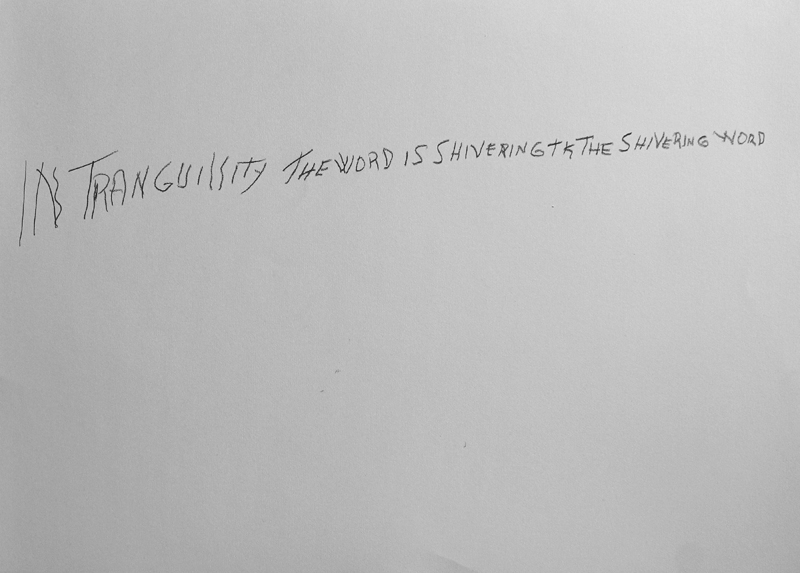 IN TRANGUILLITY THE WORD IS SHIVERING THE SHIVERING WORD